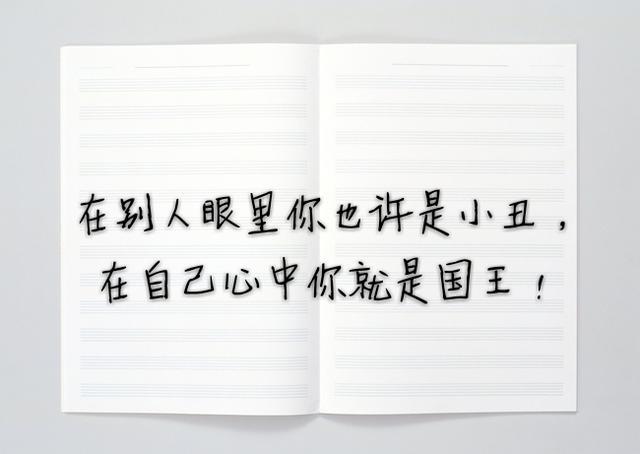 在别人眼里你也许是小丑，
在自己心中你就是国王！